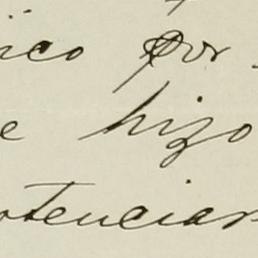 ico por
e hizo
otencias